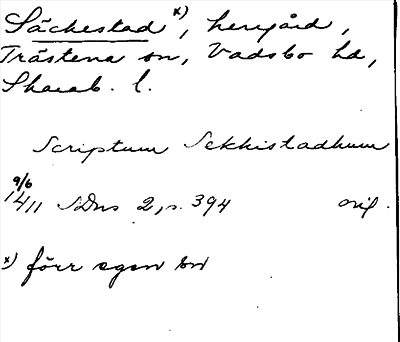 Säckestad x), herrgård,
Trästena sn, Vadsbo hd,
Skarab. l.
Scriptum Sekkistadhum
9/6
1411 SDns 2, s. 394 orig.
x) förr egen sn